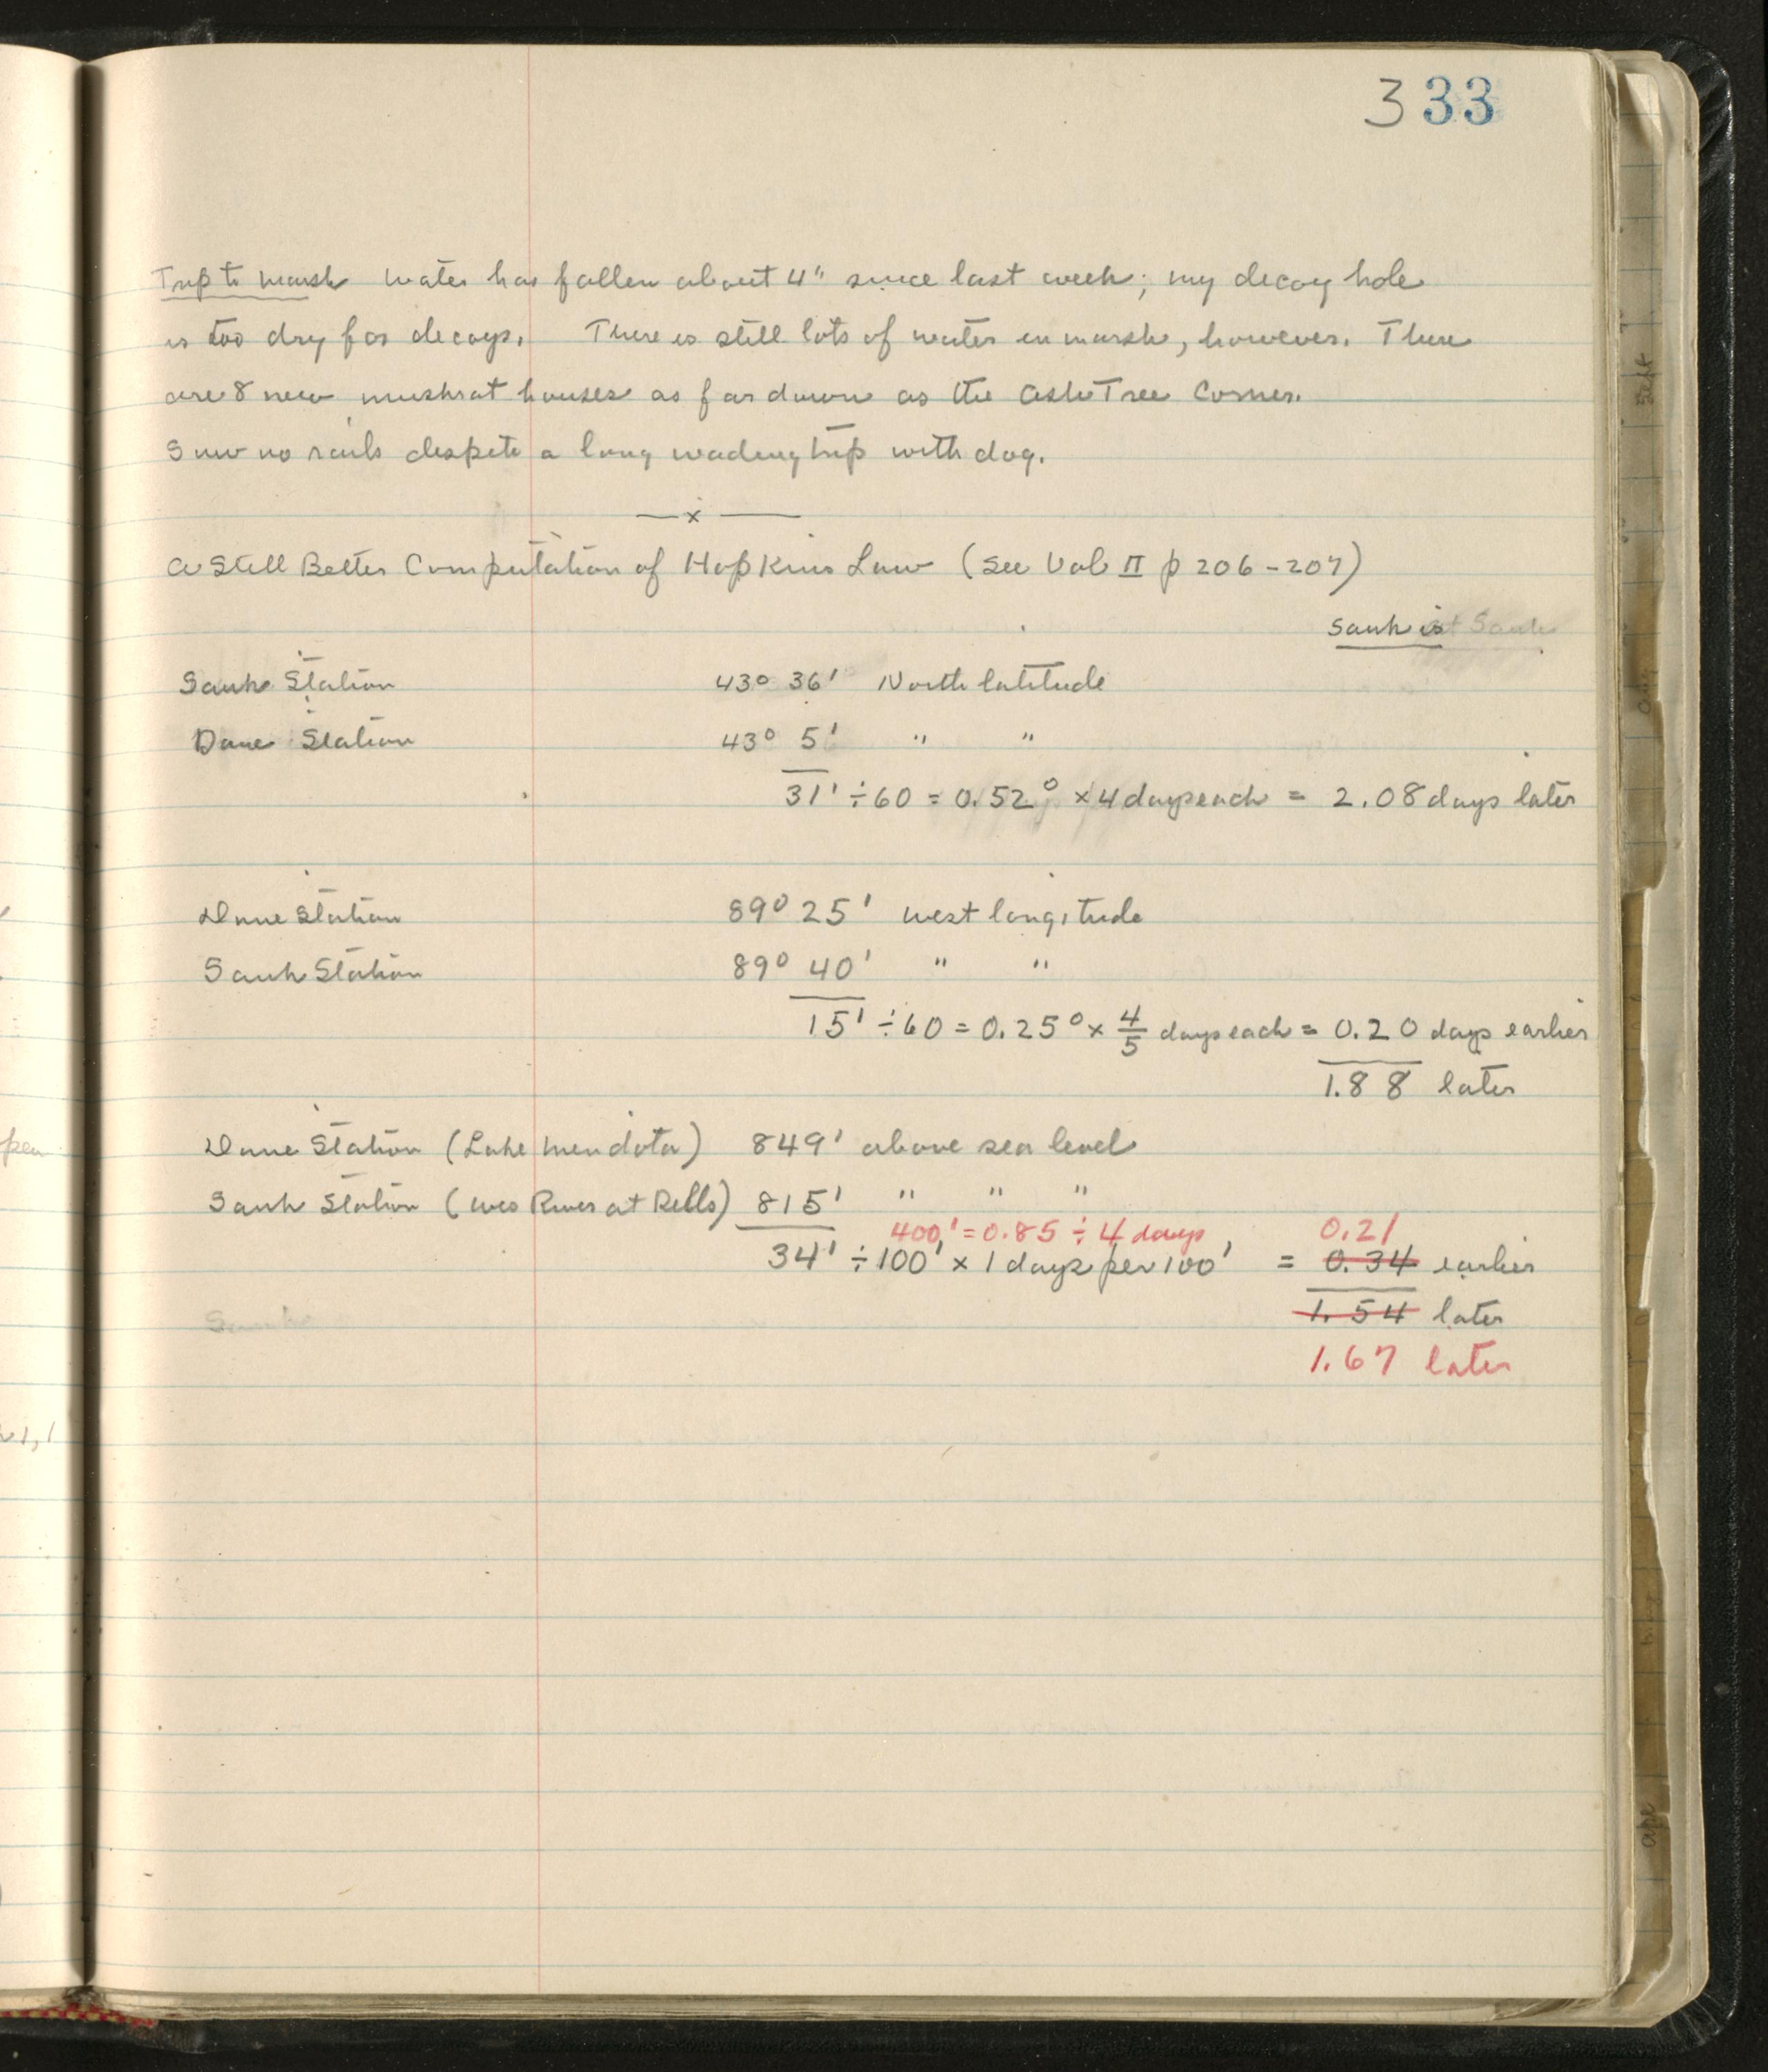 333
Trip to marsh Water has fallen about 4" since last week; my decoy hole
is too dry for decoys. There is still lots of water in marsh, however. There
are 8 new muskrat houses as far down as the Ash Tree Corner.
Saw no rails despite a long wading trip with dog.
—x—
A Still Better Computation of Hopkins Law (See Vol II p 206-207)
Sauk is
Sauk Station 43° 36' North latitude
Dane Station 43° 5' " "
31' ÷ 60 = 0.52° × 4 days each = 2.08 days later
Dane Station 89° 25' west longitude
Sauk Station 89° 40' " "
15' ÷ 60 = 0.25° × 4/5 days each = 0.20 days earlier
1.88 later
Dane Station (Lake Mendota) 849' above sea level
Sauk Station (Wis River at Dells) 815' " " "
400' = 0.85 ÷ 4 days 0.21
34' ÷ 100' × 1 days per 100' = 0.34 earlier
1.54 later
1.67 later
Sauk
pen
1,1
Sept
Aug
Apr